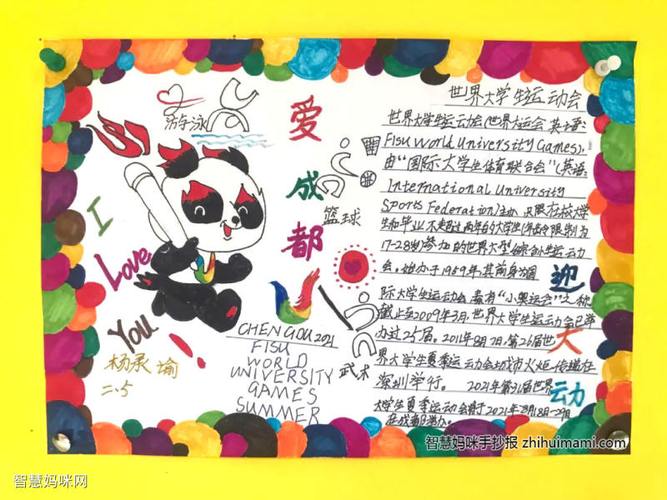 游泳
I
Love
You
！
杨承谕
二.5
爱
成
都
篮球
武术
CHENGDU 2021
FISU
WORLD
UNIVERSITY
GAMES
SUMMER
世界大学生运动会
世界大学生运动会(世界大运会，英语:
Fisu World University Games),
由“国际大学生体育联合会”(英语
International University
Sports Federation)主办，只限在校大学
生和毕业不超过两年的大学生(年龄限制为
17-28岁)参加的世界大型综合性运动
会。始办于1959年，其前身为国
际大学生运动会。素有“小奥运会”之称
截止2009年3月，世界大学生运动会已举
办过25届。2011年8月
世界大学生夏季运动会
深圳举行。2021年第31届世界
大学生夏季运动会将于2021年8月18-29日
在成都举办。
迎
大
运
智慧妈咪手抄报 zhihuimami.com
智慧妈咪网